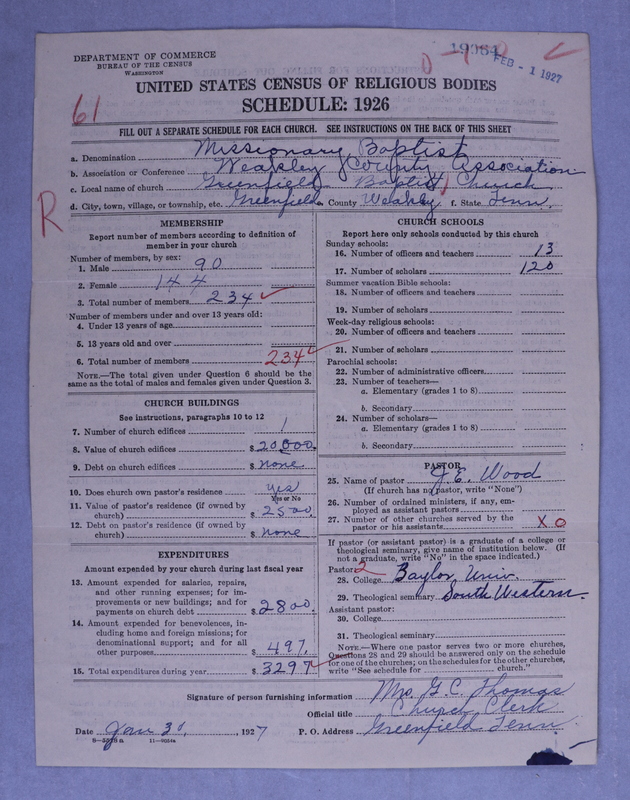 DEPARTMENT OF COMMERCE
BUREAU OF THE CENSUS
WASHINGTON
19064
FEB - 1 1927
UNITED STATES CENSUS OF RELIGIOUS BODIES
SCHEDULE: 1926
61
FILL OUT A SEPARATE SCHEDULE FOR EACH CHURCH. SEE INSTRUCTIONS ON THE BACK OF THIS SHEET
a. Denomination Missionary Baptist
b. Association or Conference Weakley County Association
c. Local name of church Greenfield Baptist Church
d. City, town, village, or township, etc. Greenfield County Weakley f. State Tenn.
R
MEMBERSHIP
Report number of members according to definition of
member in your church
Number of members, by sex:
1. Male 90
2. Female 144
3. Total number of members 234
Number of members under and over 13 years old:
4. Under 13 years of age
5. 13 years old and over
6. Total number of members 234
NOTE.—The total given under Question 6 should be the
same as the total of males and females given under Question 3.
CHURCH BUILDINGS
See instructions, paragraphs 10 to 12
7. Number of church edifices 1
8. Value of church edifices $ 20000.
9. Debt on church edifices $ none
10. Does church own pastor's residence yes
Yes or No
11. Value of pastor's residence (if owned by
church) $ 2500.
12. Debt on pastor's residence (if owned by
church) $ none
EXPENDITURES
Amount expended by your church during last fiscal year
13. Amount expended for salaries, repairs,
and other running expenses; for im-
provements or new buildings; and for
payments on church debt $ 2800.
14. Amount expended for benevolences, in-
cluding home and foreign missions; for
denominational support; and for all
other purposes $ 497.
15. Total expenditures during year $ 3297
CHURCH SCHOOLS
Report here only schools conducted by this church
Sunday schools:
16. Number of officers and teachers 13
17. Number of scholars 120
Summer vacation Bible schools:
18. Number of officers and teachers
19. Number of scholars
Week-day religious schools:
20. Number of officers and teachers
21. Number of scholars
Parochial schools:
22. Number of administrative officers
23. Number of teachers—
a. Elementary (grades 1 to 8)
b. Secondary
24. Number of scholars—
a. Elementary (grades 1 to 8)
b. Secondary
PASTOR
25. Name of pastor J. E. Wood
(If church has no pastor, write "None")
26. Number of ordained ministers, if any, em-
ployed as assistant pastors
27. Number of other churches served by the
pastor or his assistants X 0
If pastor (or assistant pastor) is a graduate of a college or
theological seminary, give name of institution below. (If
not a graduate, write "No" in the space indicated.)
Pastor: 2
28. College Baylor Univ.
29. Theological seminary South Western.
Assistant pastor:
30. College
31. Theological seminary
NOTE.—Where one pastor serves two or more churches,
Questions 28 and 29 should be answered only on the schedule
for one of the churches; on the schedules for the other churches,
write "See schedule for church."
Signature of person furnishing information Mrs. G. C. Thomas
Official title Church Clerk
Date Jan 30, 1927 P. O. Address Greenfield Tenn.